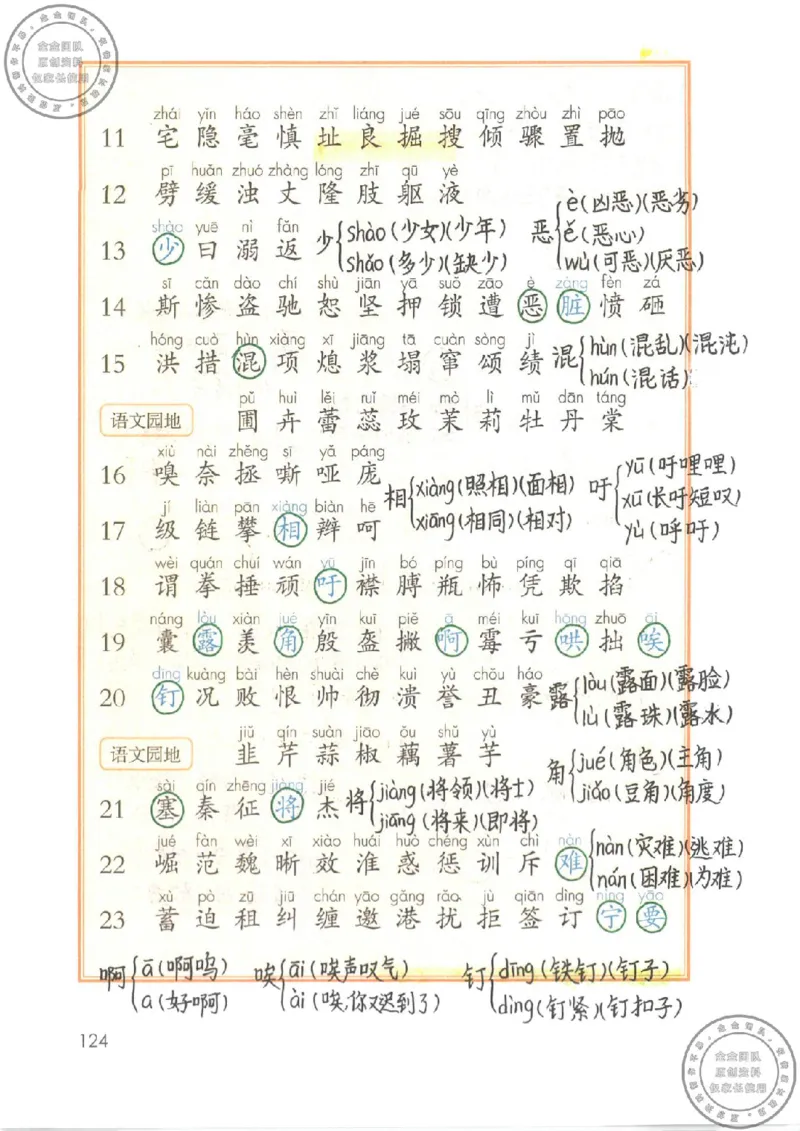 zhái yǐn háo shèn zhǐ liáng jué sōu qīng zhòu zhì pāo
11 宅 隐 毫 慎 址 良 掘 搜 倾 骤 置 抛
pī huǎn zhuó zhàng lóng zhī qū yè
12 劈 缓 浊 丈 隆 肢 躯 液
shào yuē nì fǎn
13 少 曰 溺 返
少 shào(少女)(少年)
shǎo(多少)(缺少)
恶 è(凶恶)(恶劣)
ě(恶心)
wù(可恶)(厌恶)
sī cǎn dào chí shù jiān yā suǒ zāo è zāng fèn zá
14 斯 惨 盗 驰 恕 坚 押 锁 遭 恶 脏 愤 砸
hóng cuò hùn xiàng xī jiāng tā cuàn sòng jì
15 洪 措 混 项 熄 浆 塌 窜 颂 绩
混 hùn(混乱)(混沌)
hún(混话)
pǔ huì lěi ruǐ méi mò lì mǔ dān táng
语文园地 圃 卉 蕾 蕊 玫 茉 莉 牡 丹 棠
xiù nài zhěng sī yǎ páng
16 嗅 奈 拯 嘶 哑 庞
相 xiàng(照相)(面相)
xiāng(相同)(相对)
吁 yū(吁哩哩)
xū(长吁短叹)
yù(呼吁)
jí liàn pān xiàng biàn hē
17 级 链 攀 相 辫 呵
wèi quán chuí wán yū jīn bó píng bù píng qī qiā
18 谓 拳 捶 顽 吁 襟 膊 瓶 怖 凭 欺 掐
náng lòu xiàn jué yīn kuī piě ā méi kuī hōng zhuō āi
19 囊 露 羡 角 殷 盔 撇 啊 霉 亏 哄 拙 唉
dīng kuàng bài hèn shuài chè kuì yù chǒu háo
20 钉 况 败 恨 帅 彻 溃 誉 丑 豪
露 lòu(露面)(露脸)
lù(露珠)(露水)
jiǔ qín suàn jiāo ǒu shǔ yù
语文园地 韭 芹 蒜 椒 藕 薯 芋
角 jué(角色)(主角)
jiǎo(豆角)(角度)
sài qín zhēng jiàng jié
21 塞 秦 征 将 杰
将 jiàng(将领)(将士)
jiāng(将来)(即将)
jué fàn wèi xī xiào huái huò chéng xùn chì nàn
22 崛 范 魏 晰 效 淮 惑 惩 训 斥 难
nàn(灾难)(逃难)
nán(困难)(为难)
xù pò zū jiū chán yāo gǎng rǎo jù qiān dìng nìng yāo
23 蓄 迫 租 纠 缠 邀 港 扰 拒 签 订 宁 要
啊 ā(啊呜)
a(好啊)
唉 āi(唉声叹气)
ài(唉,你又迟到了)
钉 dīng(铁钉)(钉子)
dìng(钉紧)(钉扣子)
124